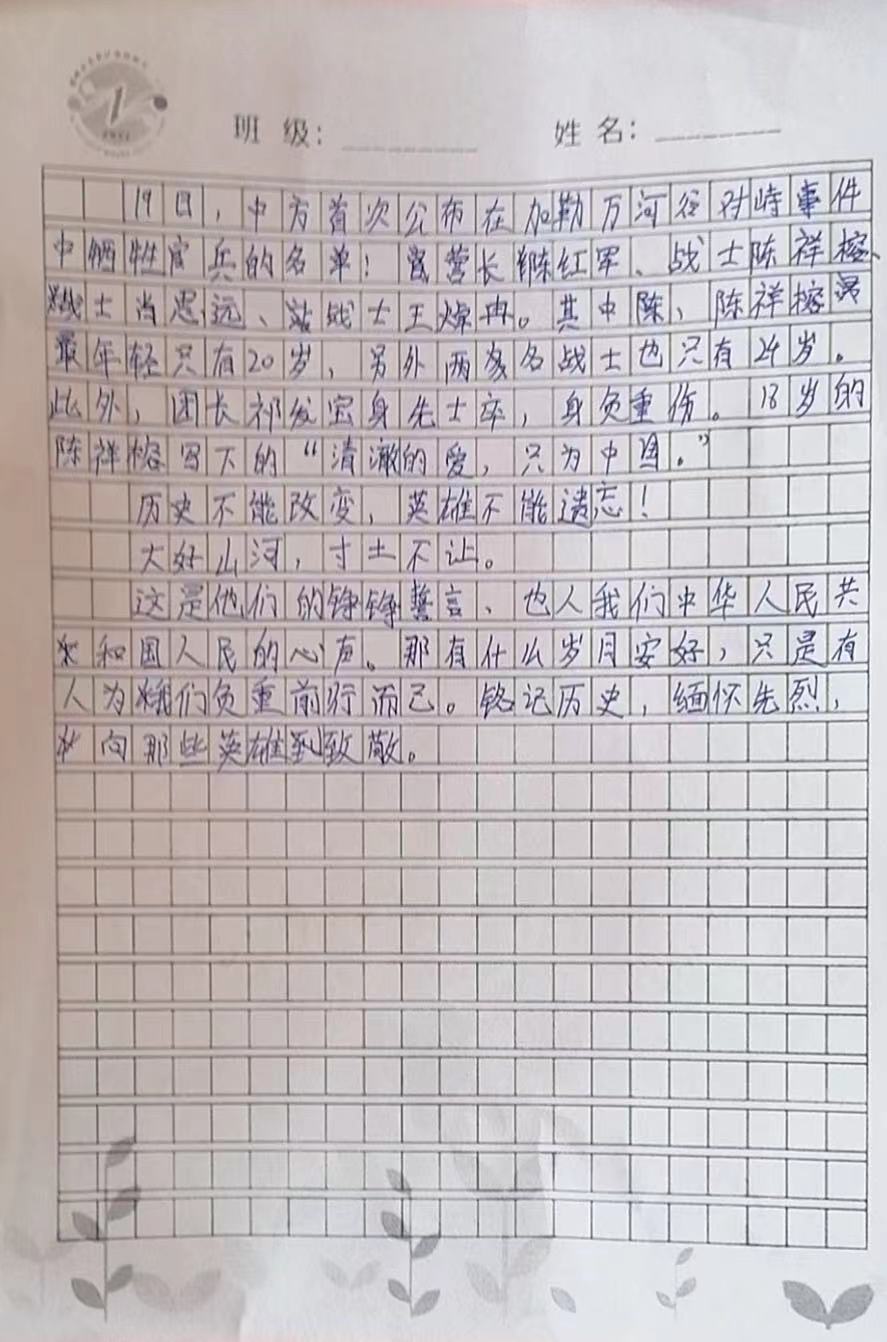 班 级： 姓 名：
19日，中方首次公布在加勒万河谷对峙事件
中牺牲官兵的名单！营长陈红军、战士陈祥榕、
战士肖思远、战士王焯冉。其中，陈祥榕
最年轻只有20岁，另外两名战士也只有24岁。
此外，团长祁发宝身先士卒，身负重伤。18岁的
陈祥榕写下的“清澈的爱，只为中国。”
历史不能改变，英雄不能遗忘！
大好山河，寸土不让。
这是他们的铮铮誓言、也人我们中华人民共
和国人民的心声。那有什么岁月安好，只是有
人为我们负重前行而已。铭记历史，缅怀先烈，
向那些英雄致敬。